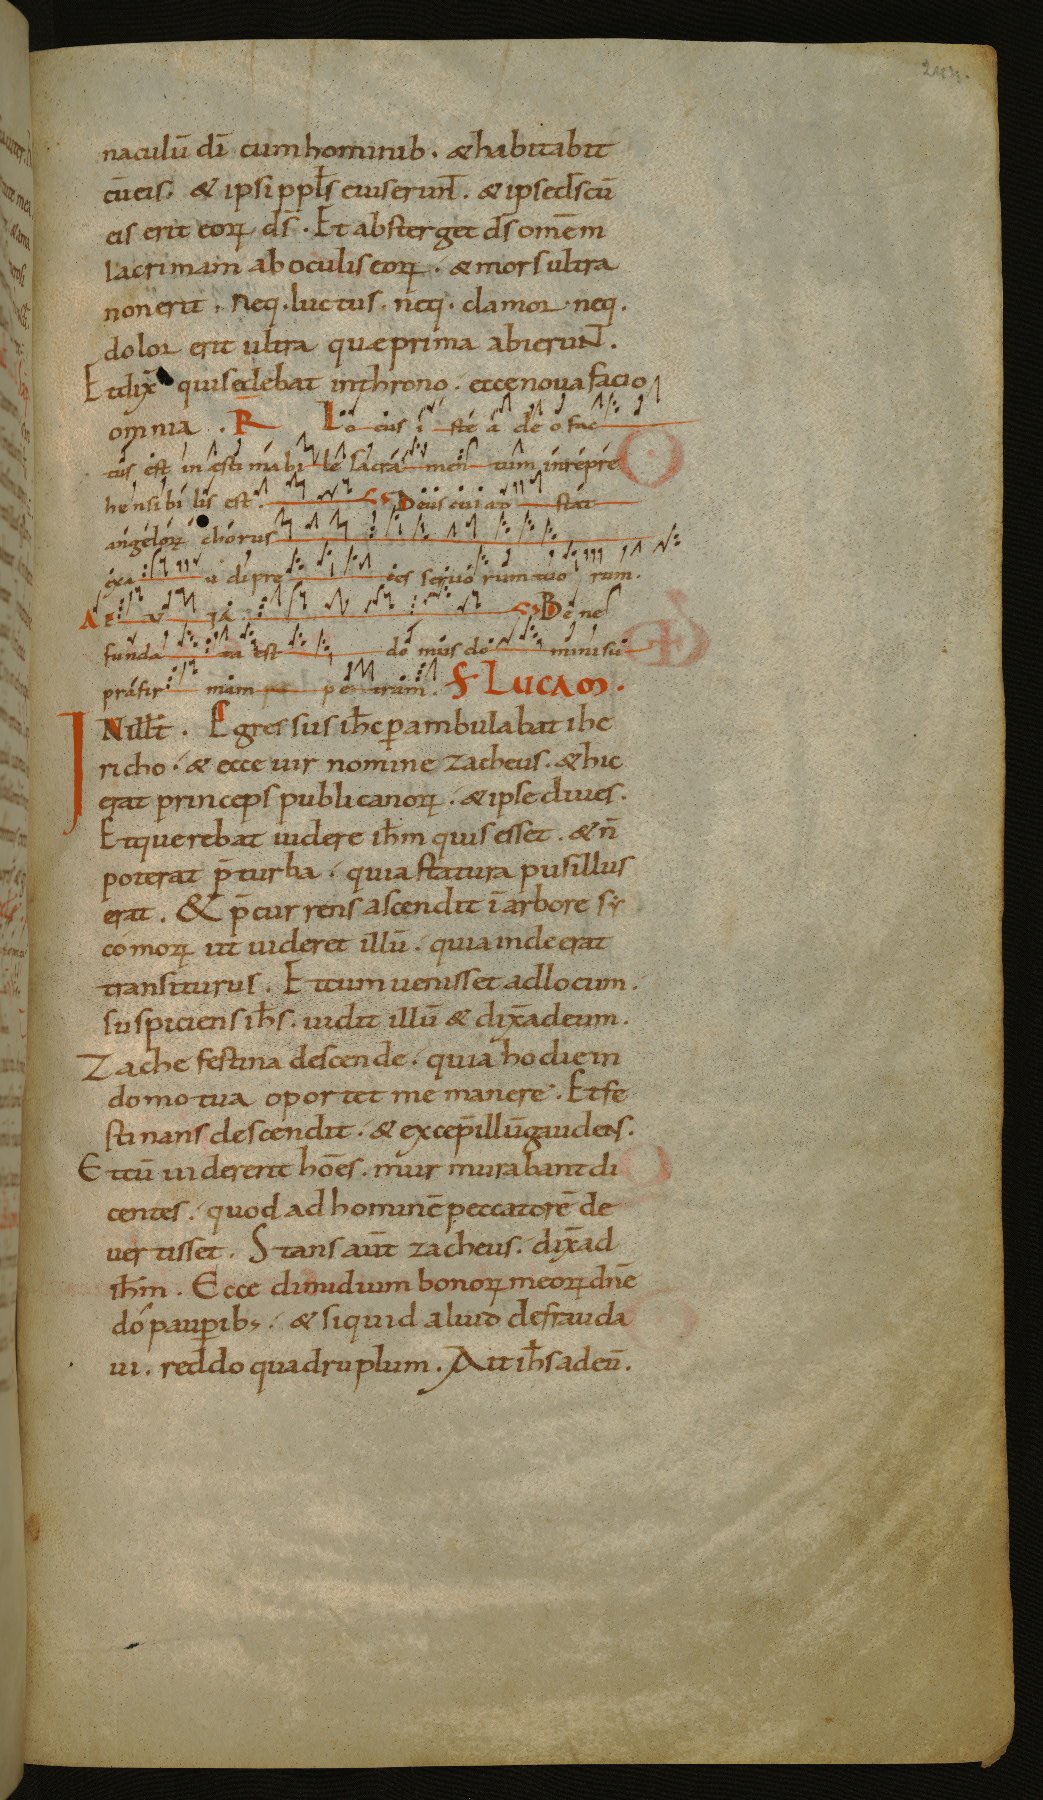 naculū dī cum hominib. & habitabit
cū eis. & ipsi pp̄ls eius erunt̄. & ipse ds̄ cū
eis erit eoꝝ ds̄. Et absterget ds̄ omēm
lacrimam ab oculis eoꝝ. & mors ultra
non erit. neq. luctus. neq. clamor. neq.
dolor erit ultra quae prima abierunt̄.
Et dix̄ qui sedebat in throno. ecce noua facio
omnia. R Locus iste a deo fac
tus est inestimabile sacramentum inrepre
hensibilis est. Deus cui astat
angeloꝝ chorus
exaudi preces seruorum tuorum.
AEVIA Bene
fundata est domus domini su
pra firmam petram. S LUCAM.
IN ill̄t. Egressus ih̄c p̄ambulabat ihe
richo. & ecce uir nomine zacheus. & hic
erat princeps publicanoꝝ. & ipse diues.
Et querebat uidere ih̄m quis esset. & n̄
poterat p̄ turba. quia statura pusillus
erat. & p̄currens ascendit ī arbore sy
comoꝝ ut uideret illū. quia inde erat
transiturus. Et cum uenisset ad locum.
suspiciens ih̄s. uidit illū & dix̄ ad eum.
Zache festina descende. quia hodie in
domo tua oportet me manere. Et fe
stinans descendit. & excep̄ illū gaudens.
Et cū uiderent hōēs. murmurabant di
centes. quod ad hominē peccatorē de
uertisset. Stans aūt zacheus. dix̄ ad
ih̄m. Ecce dimidium bonoꝝ meoꝝ dnē
do paup̄ib;. & si quid aliud defrauda
ui. reddo quadruplum. Ait ih̄s ad eū.